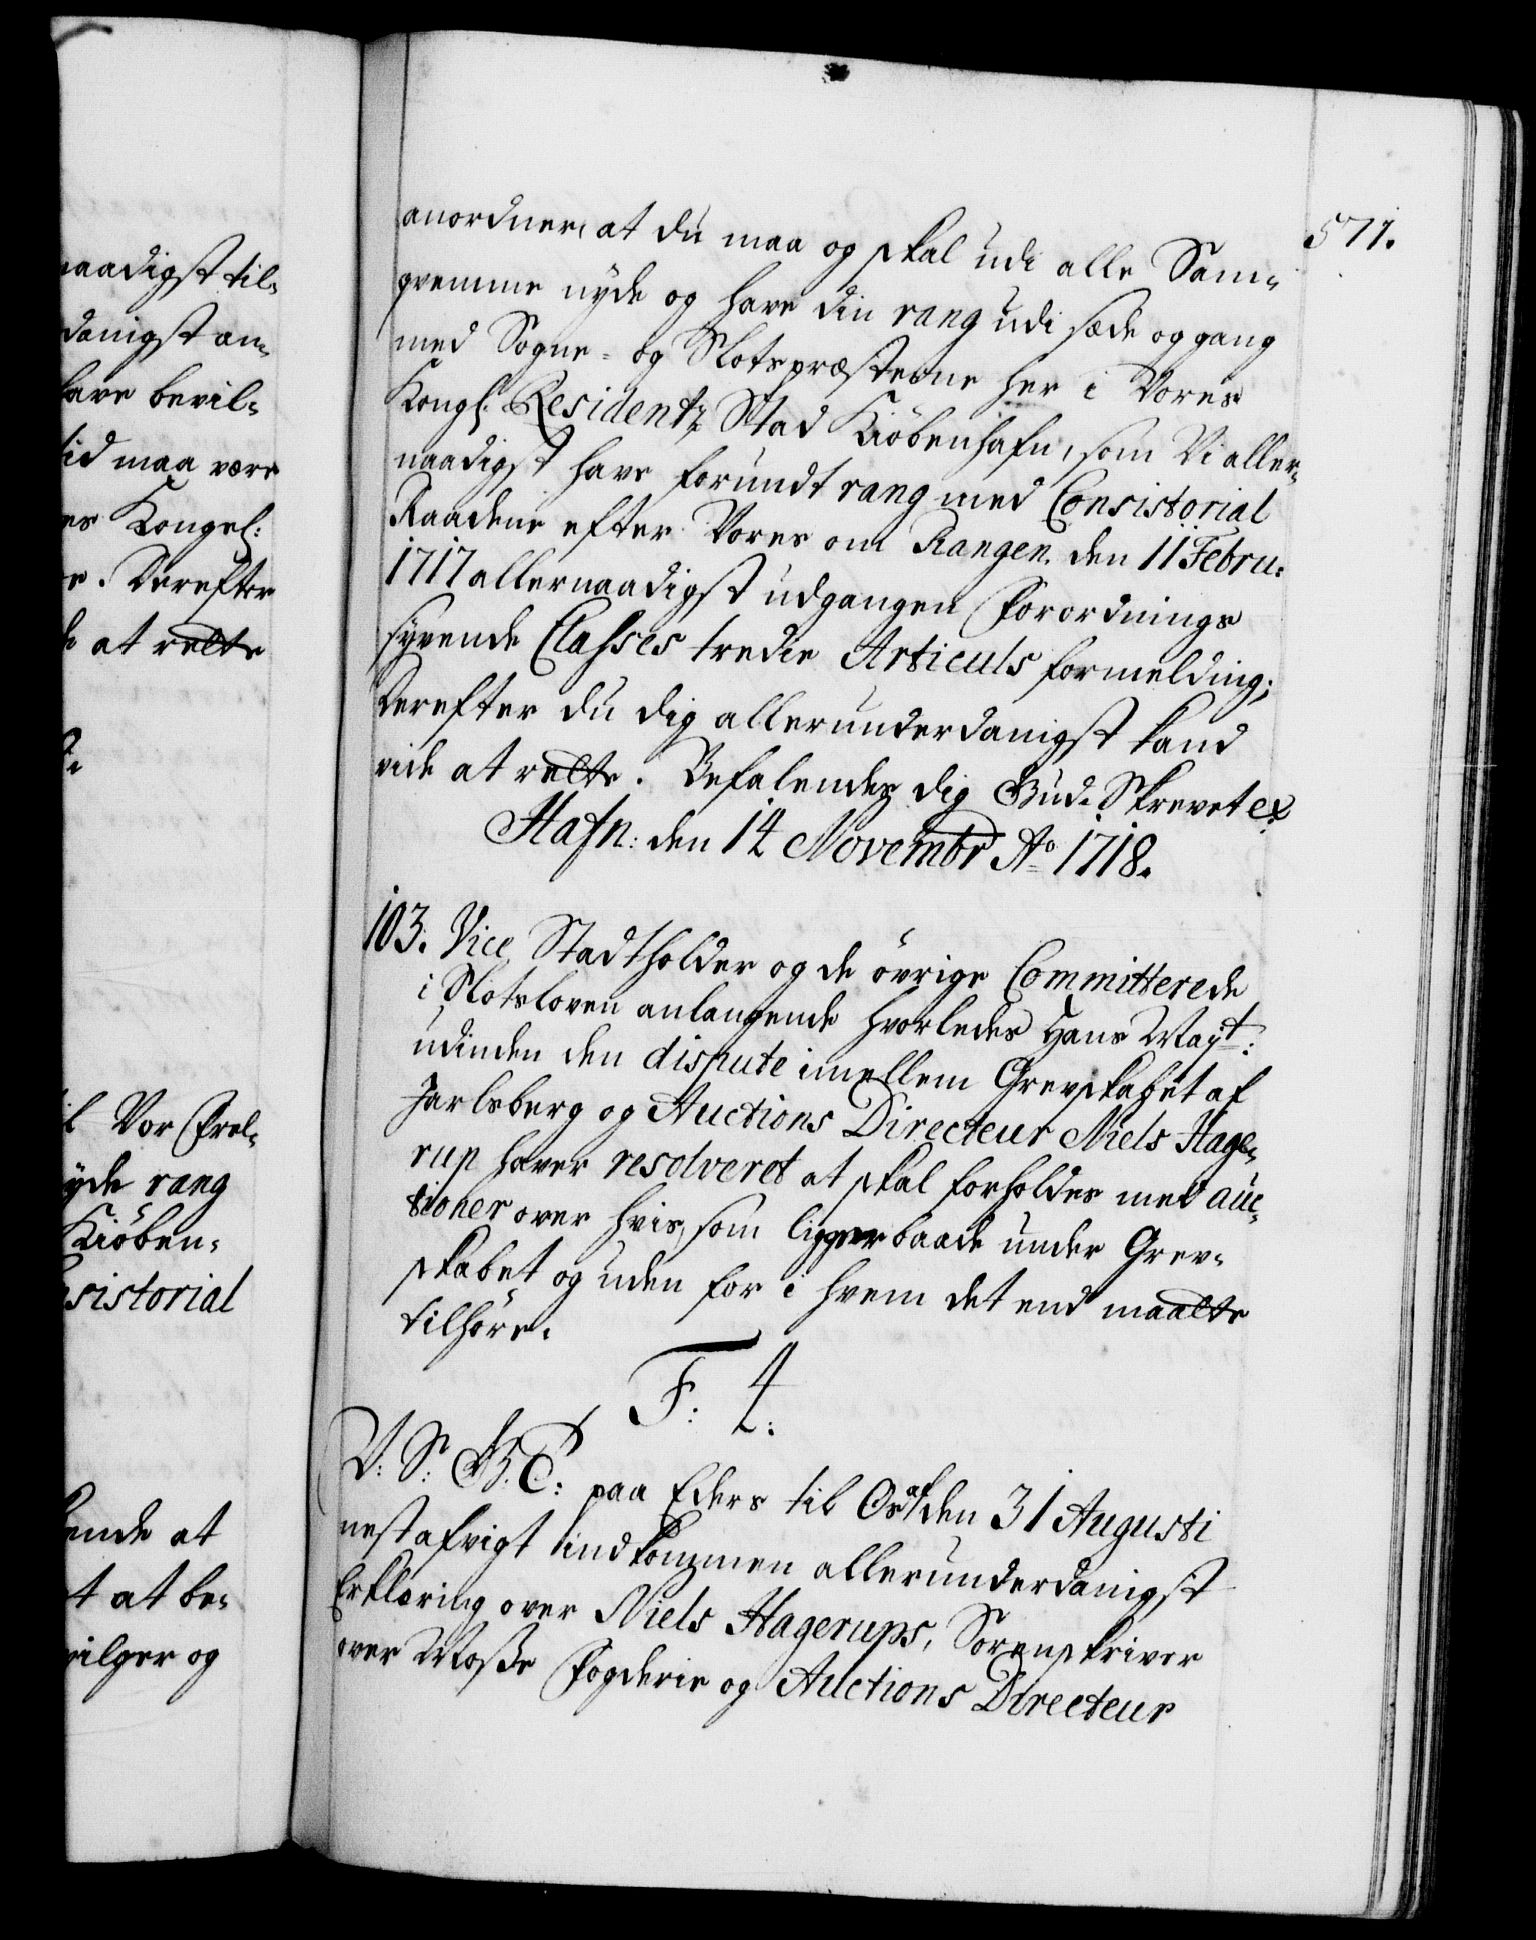 naadigst til-
danigst an-
have bevil-
tid maa være
es Kongel:
e. Derefter
at rette
Vor Præl-
yde rang
Kiöben-
sistorial
ende at
t at be-
vilger og
571.
anordner, at du maa og skal udi alle Sam-
qvemme nyde og have din rang udi sæde og gang
med Sogne- og Slotspræsterne her i Vores
Kongl: Residentz Stad Kiöbenhafn, som Vi aller-
naadigst have forundt rang med Consistorial
Raadene efter Vores om Rangen den 11 Febru:
1717 allernaadigst udgangen Forordnings
syvende Classes tredie Articuls formelding;
Derefter du dig allerunderdanigst kand
vide at rette. Befalendes dig Gud. Skrevet ex
Hafn: den 14 Novembr Ao 1718.
103. Vice Stadtholder og de övrige Committerede
i Slotsloven anlangende hvorledes Hans Mayt:
udinden den dispute imellem Grevskabet af
Jarlsberg og Auctions Directeur Niels Hage-
rup haver resolveret at skal forholdes med auc-
tioner over hvis, som ligger baade under Grev-
skabet og uden for i hvem det end maatte
tilhöre.
F: 4:
V: S: G. T: paa Eders til Os af den 31 Augusti
nest afvigt indkommen allerunderdanigst
Erklæring over Niels Hagerups, Sorenskriver
over Mosse Fogderie og Auctions Directeur